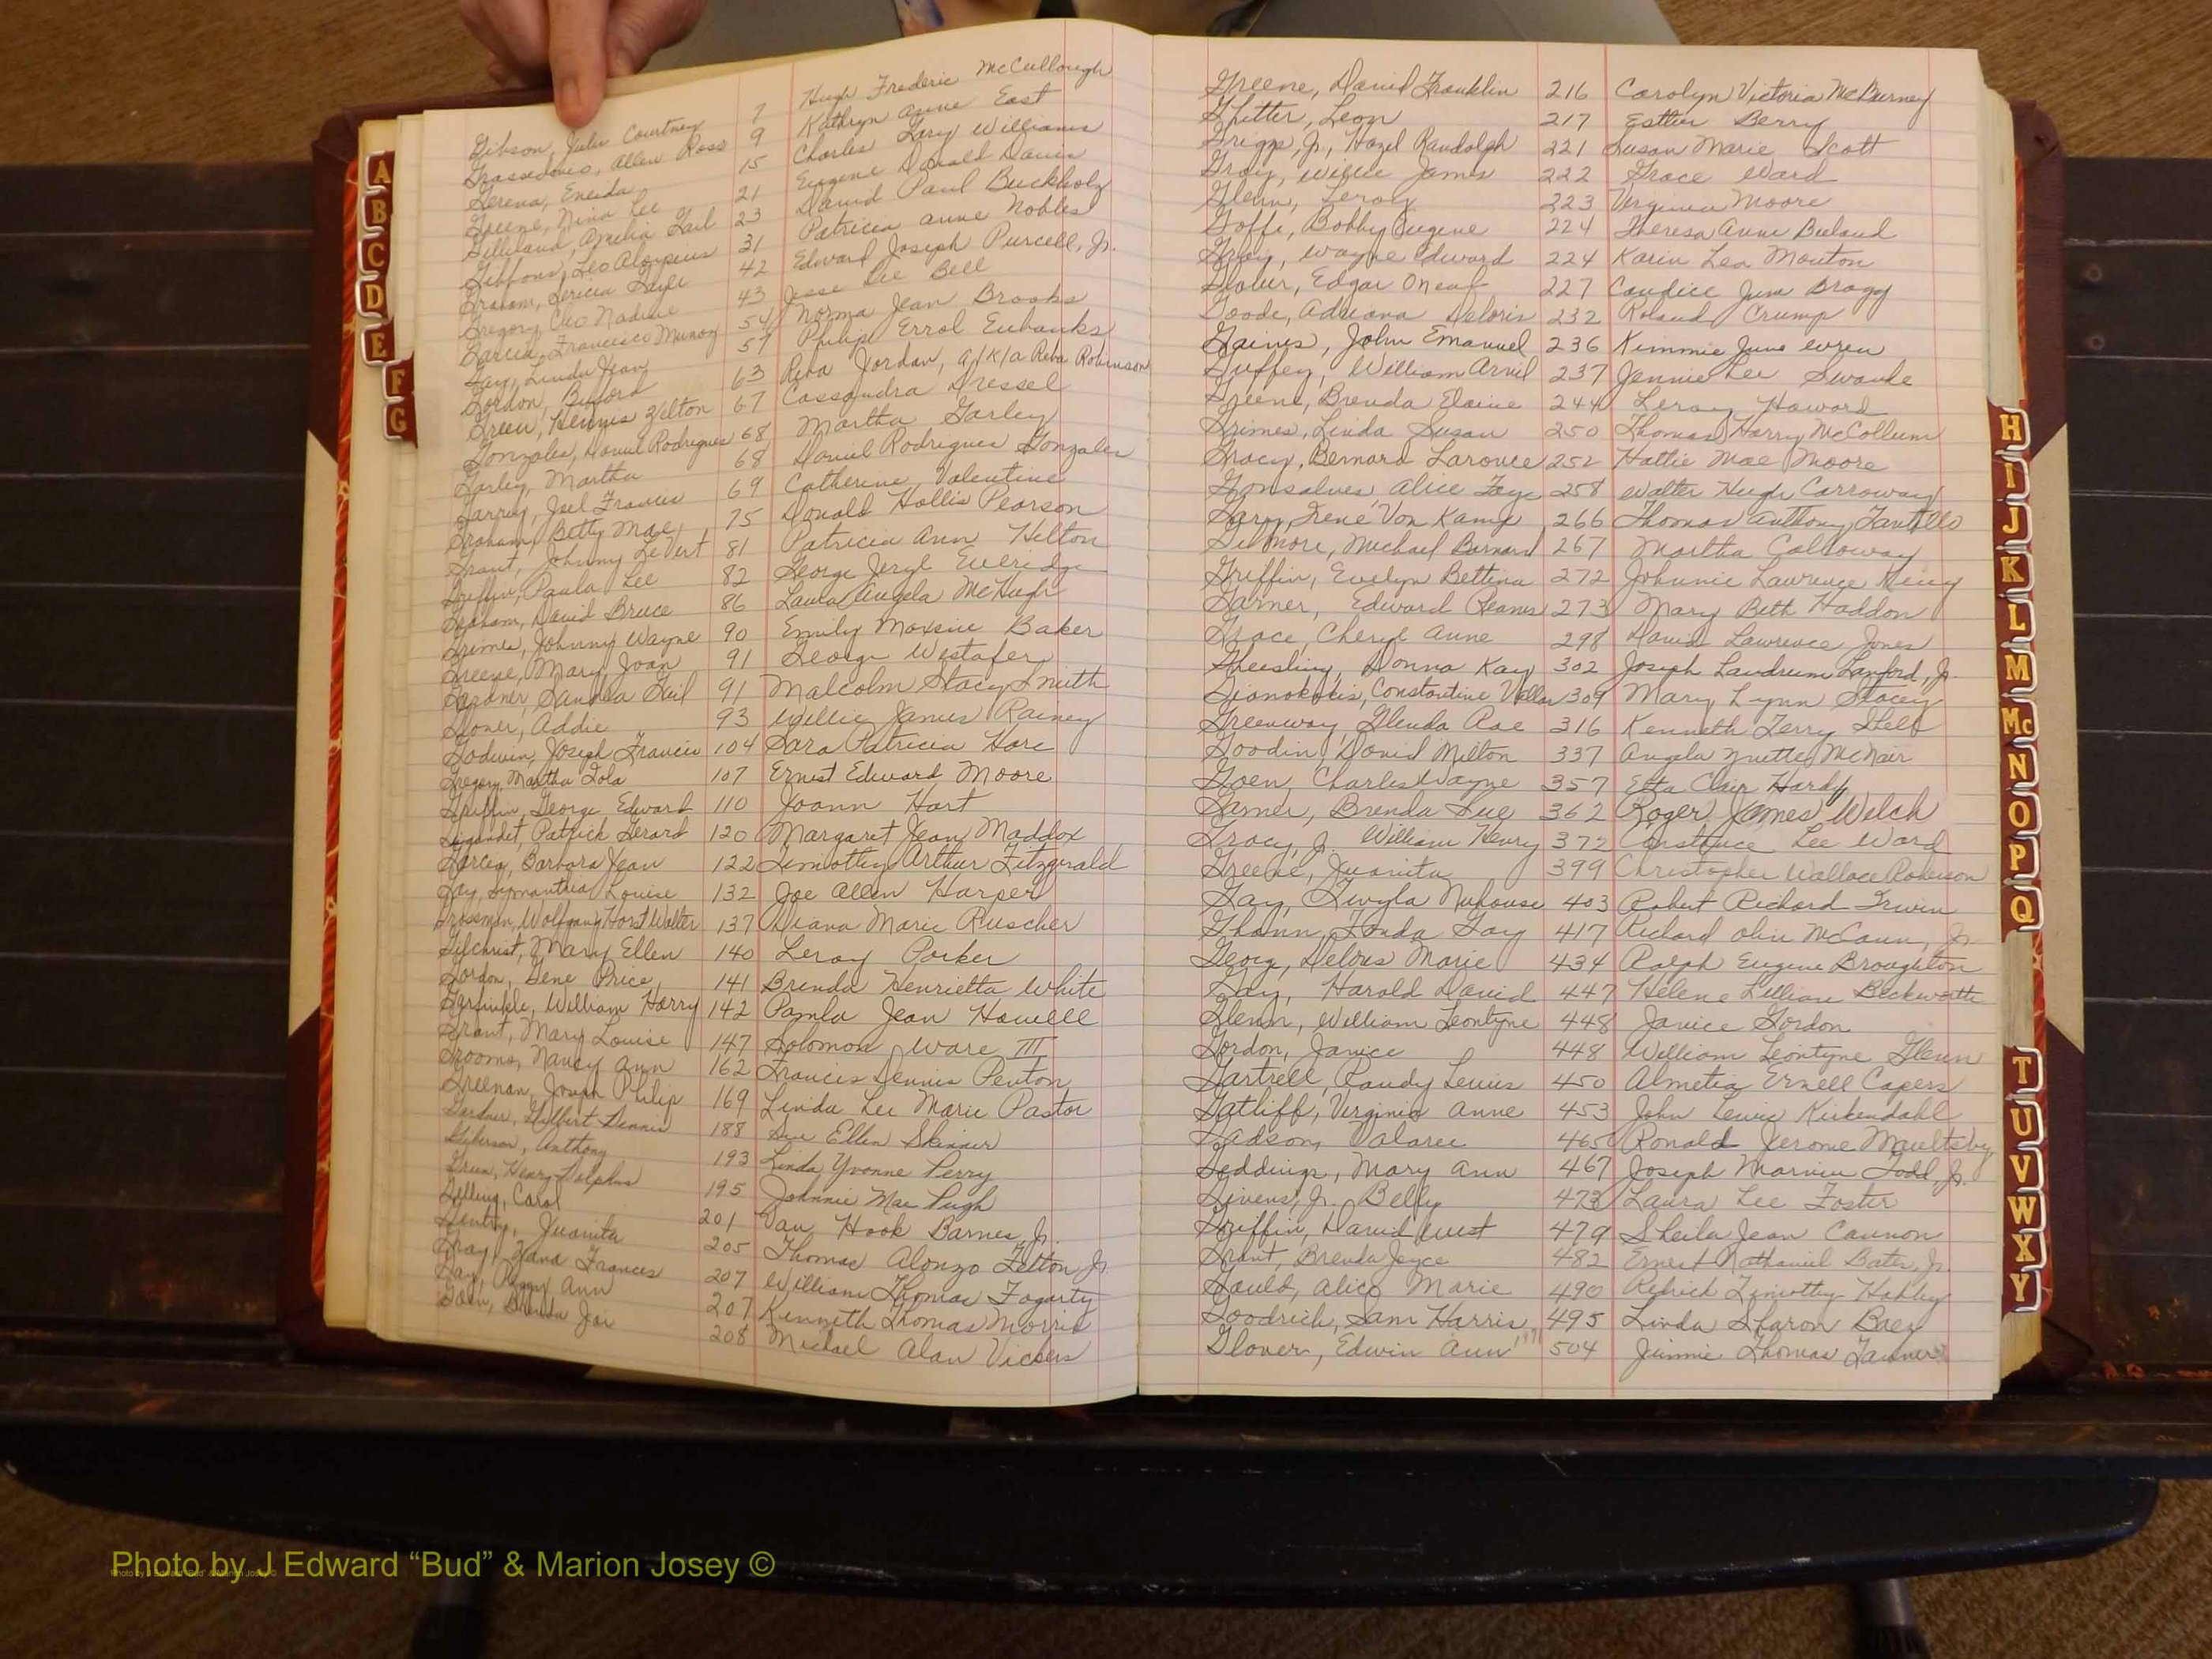 Gibson, Julia Courtney 7 Hugh Frederic McCullough
Allen Ross 9 Kathryn Anne East
Gerena, Eneida 15 Charles Gary Williams
Greene, Nina Lee 21 Eugene Donald Davis
Gilleland, Amelia Gail 23 David Paul Buckholz
Gibbons, Leo Aloysius 31 Patricia Anne Nobles
Graham, Lericia Gayle 42 Edward Joseph Purcell, Jr.
Gregory, Cleo Nadine 43 Jesse Lee Bell
Garcia, Francisco Munoz 54 Norma Jean Brooks
Gay, Linda Jean 59 Philip Errol Eubanks
Gordon, Buford 63 Reba Jordan, a/k/a Reba Robinson
Green, Dennis Zelton 67 Cassandra Dressel
Gonzales, Daniel Rodrigues 68 Martha Garley
Garley, Martha 68 Daniel Rodrigues Gonzales
Joel Francis 69 Catherine Valentine
Graham, Betty Mae 75 Donald Hollis Pearson
Grant, Johnny LeVert 81 Patricia Ann Hilton
Griffin, Paula Lee 82 George Jeryl Everidge
Graham, David Bruce 86 Laula Angela McHugh
Grimes, Johnny Wayne 90 Emily Maxine Baker
Greene, Mary Joan 91 George Westafer
Gardner, Sandra Gail 91 Malcolm Stacy Smith
Addie 93 Willie James Rainey
Godwin, Joseph Francis 104 Sara Patricia Hare
Gregory, Martha Iola 107 Ernest Edward Moore
Griffin, George Edward 110 Joann Hart
Patrick Gerard 120 Margaret Jean Maddox
Garcia, Barbara Jean 122 Timothy Arthur Fitzgerald
Gay, Symanthia Louise 132 Joe Allen Harper
Grossman, Wolfgang Horst Walter 137 Diana Marie Ruscher
Gilchrist, Mary Ellen 140 Leroy Parker
Gordon, Gene Price 141 Brenda Henrietta White
Garfinkle, William Harry 142 Pamla Jean Howell
Grant, Mary Louise 147 Solomon Ware III
Grooms, Nancy Ann 162 Francis Dennis Penton
Greenan, Joseph Philip 169 Linda Lee Marie Pastor
Gardner, Gilbert Dennis 188 Sue Ellen Skinner
Anthony 193 Linda Yvonne Perry
Green, Henry Dolphus 195 Johnnie Mae Pugh
Gelling, Carol 201 Van Hook Barnes, Jr.
Gentry, Juanita 205 Thomas Alonzo Felton, Jr.
Gray, Zana Frances 207 William Thomas Fogarty
Gay, Peggy Ann 207 Kenneth Thomas Morris
Brenda Joi 208 Michael Alan Vickers
Greene, David Franklin 216 Carolyn Victoria McBurney
Leon 217 Esther Berry
Griggs, Jr., Hazel Randolph 221 Susan Marie Scott
Gray, Willie James 222 Grace Ward
Glenn, Leroy 223 Virginia Moore
Goffe, Bobby Eugene 224 Theresa Anne Buland
Gray, Wayne Edward 224 Karin Lea Mouton
Glover, Edgar Oneal 227 Candice June Bragg
Goode, Adriana Deloris 232 Roland Crump
Gaines, John Emanuel 236 Kimmie June Wren
Guffey, William Arvil 237 Jennie Lee Swande
Greene, Brenda Elaine 244 Leroy Howard
Grimes, Linda Susan 250 Thomas Harry McCollum
Gracy, Bernard Larouce 252 Hattie Mae Moore
Gonsalves, Alice Faye 258 Walter Hugh Carroway
Gary, Irene Von Kamp 266 Thomas Anthony Fantillo
Gilmore, Michael Barnard 267 Martha Calloway
Griffin, Evelyn Bettina 272 Johnnie Lawrence King
Garner, Edward Reanes 273 Mary Beth Haddon
Grace, Cheryl Anne 298 David Lawrence Jones
Gheesling, Donna Kay 302 Joseph Landrum Lanford, Jr.
Gianokakis, Constantine 309 Mary Lynn Stacey
Greenway, Glenda Rae 316 Kenneth Terry
Goodin, David Milton 337 Angela Yvette McNair
Goen, Charles Wayne 357 Etta Clair Hardy
Garner, Brenda Sue 362 Roger James Welch
Gracy, Jr. William Henry 372 Constance Lee Ward
Greene, Juanita 399 Christopher Wallace Roberson
Gay, Twyla Nuhouse 403 Robert Richard Irwin
Ghann, Fonda Gay 417 Richard Olin McCann, Jr.
Georg, Delois Marie 434 Ralph Eugene Broughton
Gay, Harold David 447 Helene Lillian Beckworth
Glenn, William Leontyne 448 Janice Gordon
Gordon, Janice 448 William Leontyne Glenn
Gartrell, Randy Lewis 450 Almetia Ernell Capers
Gatliff, Virginia Anne 453 John Lewis Kirkendahl
Gadson, Valaree 465 Ronald Jerome Maultsby
Geddings, Mary Ann 467 Joseph Marvin Todd, Jr.
Givens, Jr., Belly 473 Laura Lee Foster
Griffin, David West 479 Sheila Jean Cannon
Grant, Brenda Joyce 482 Ernest Nathaniel Bates, Jr.
Gauld, Alice Marie 490 Timothy
Goodrich, Sam Harris 495 Linda Sharon Baez
Glover, Edwin Ann 504 Jimmie Thomas
A
B
C
D
E
F
G
H
I
J
K
L
M
Mc
N
O
P
Q
T
U
V
W
X
Y
Photo by J Edward “Bud” & Marion Josey ©
Photo by J Edward “Bud” & Marion Josey ©